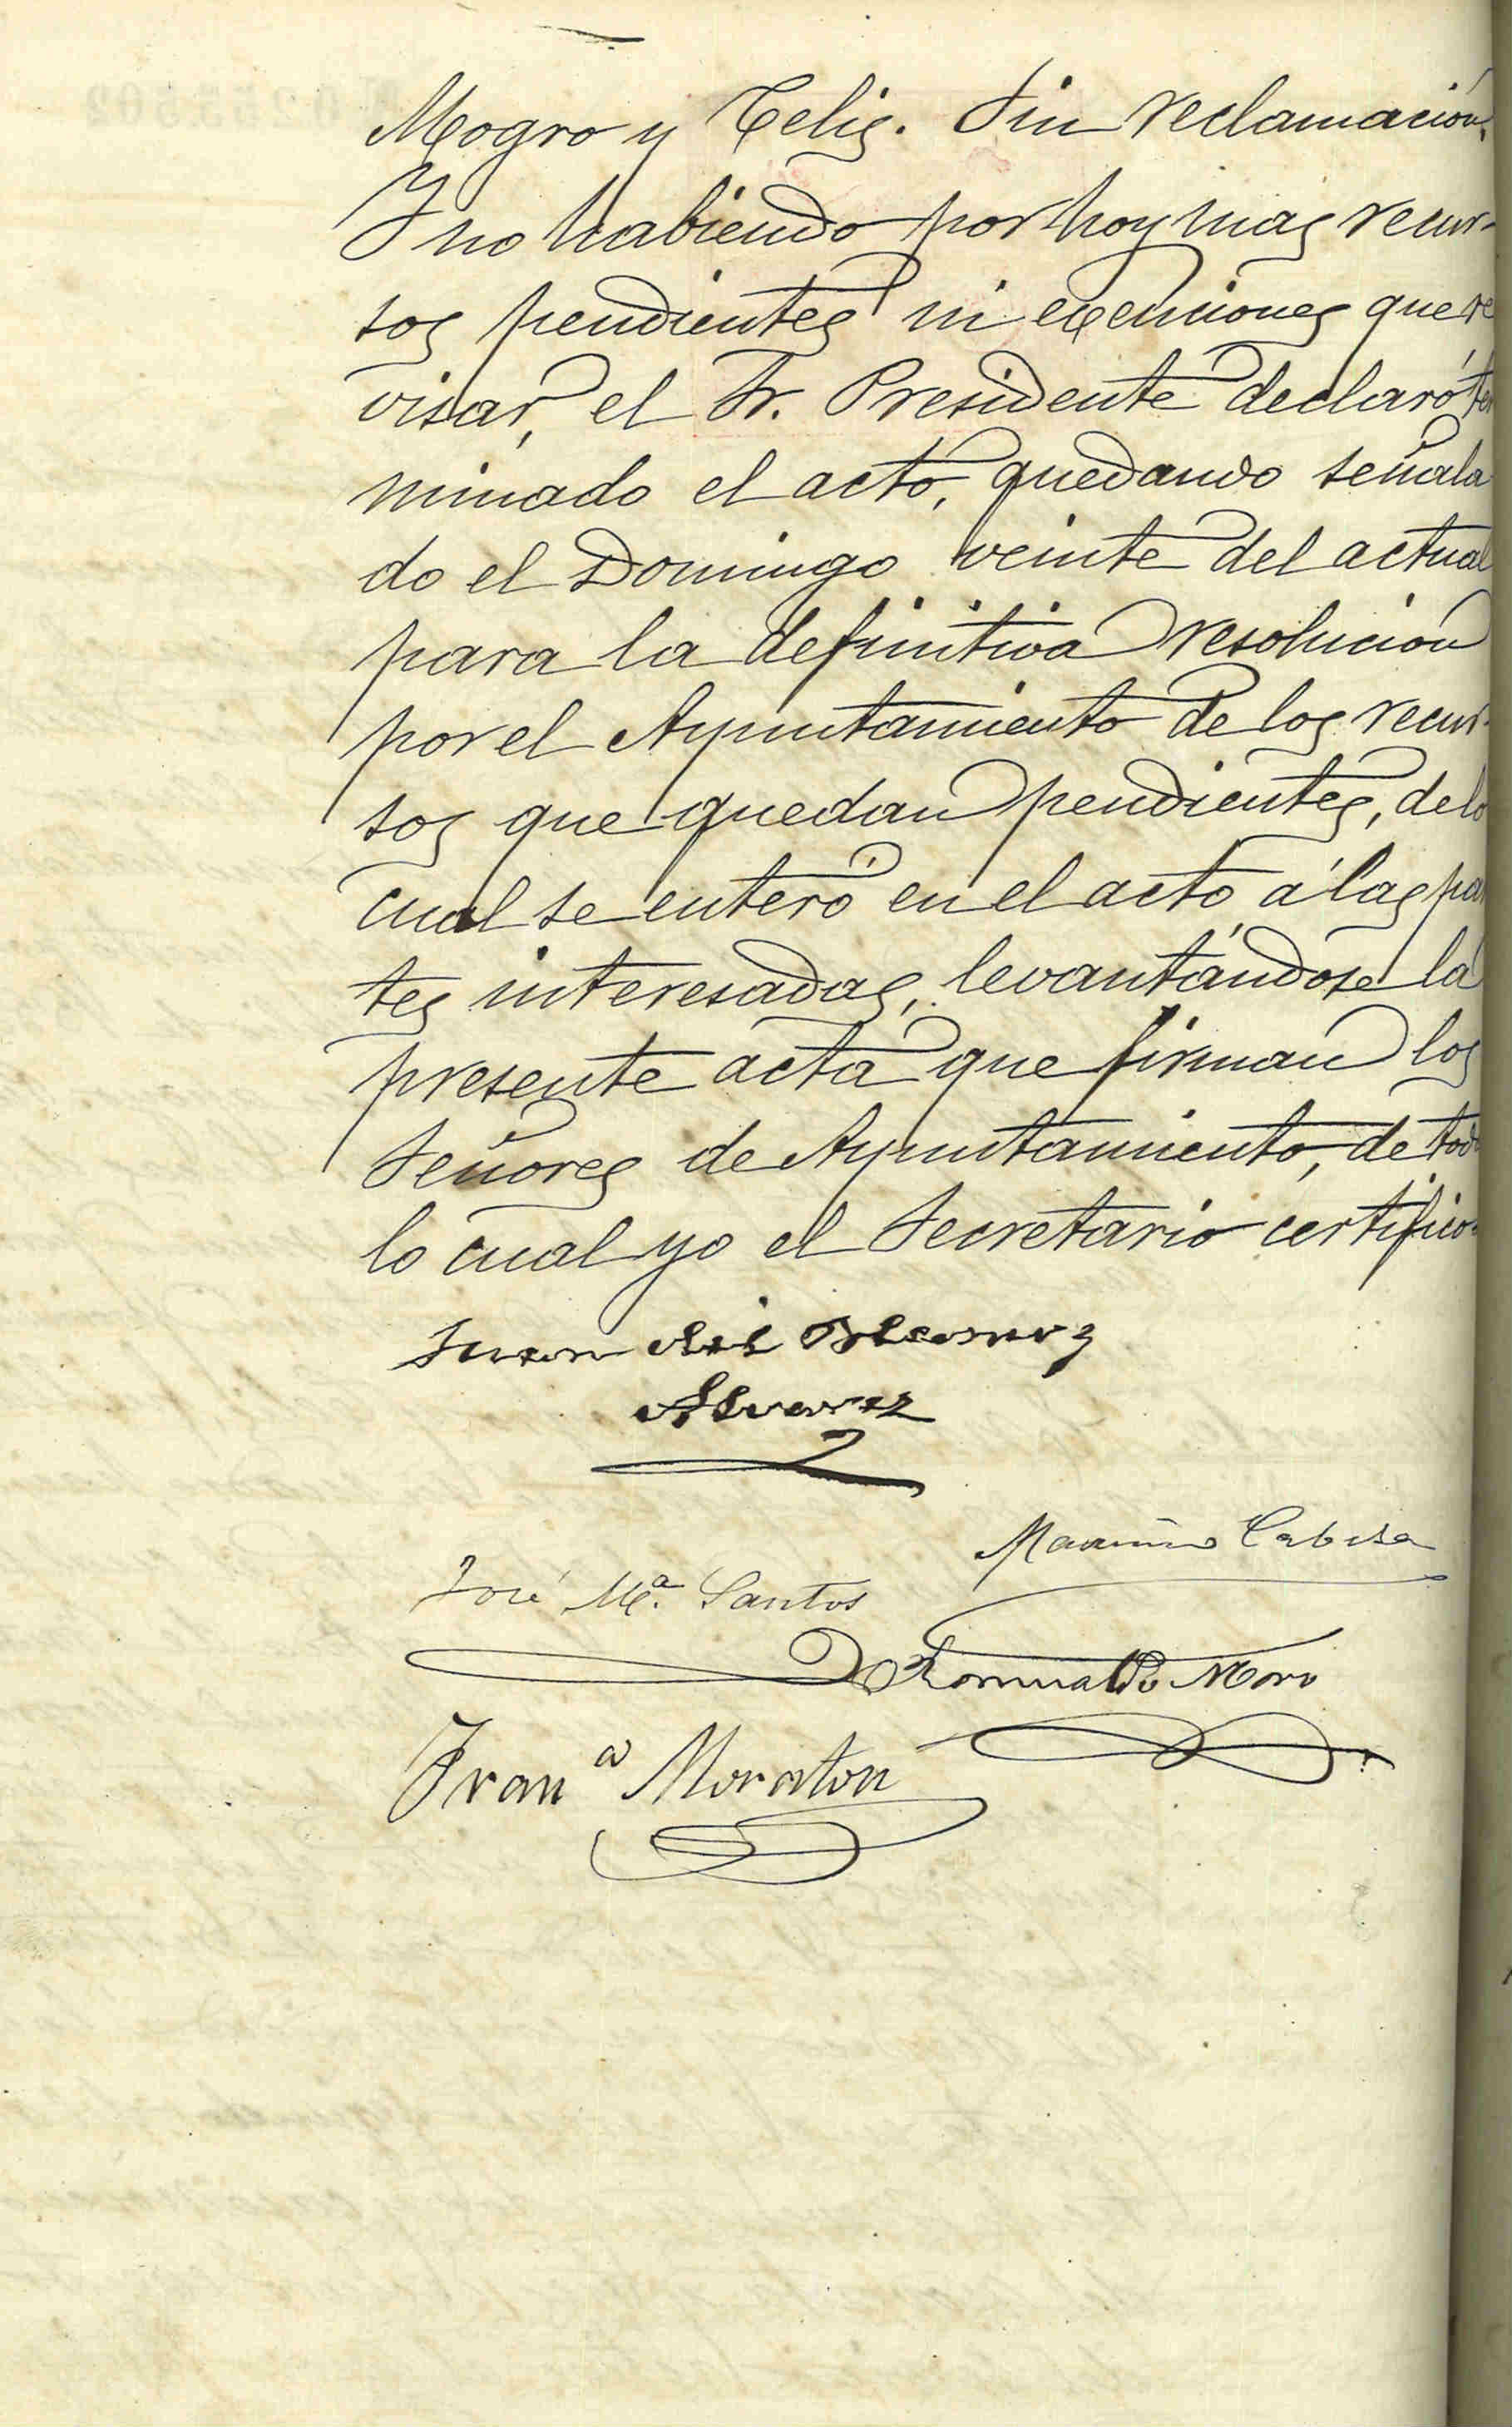 Mogro y Celis. Sin reclamación.
Y no habiendo por hoy mas recur-
sos pendientes ni exenciones que re
visar, el Sr. Presidente declaró ter
minado el acto, quedando señala
do el Domingo veinte del actual
para la definitiva resolución
por el Ayuntamiento de los recur-
sos que quedan pendientes, de lo
cual se enteró en el acto á las par
tes interesadas, levantándose la
presente acta que firman los
Señores de Ayuntamiento, de todo
lo cual yo el Secretario certifico.
Juan
Alvarez
José Mª. Santos
Romualdo Moro
Franco Moraton